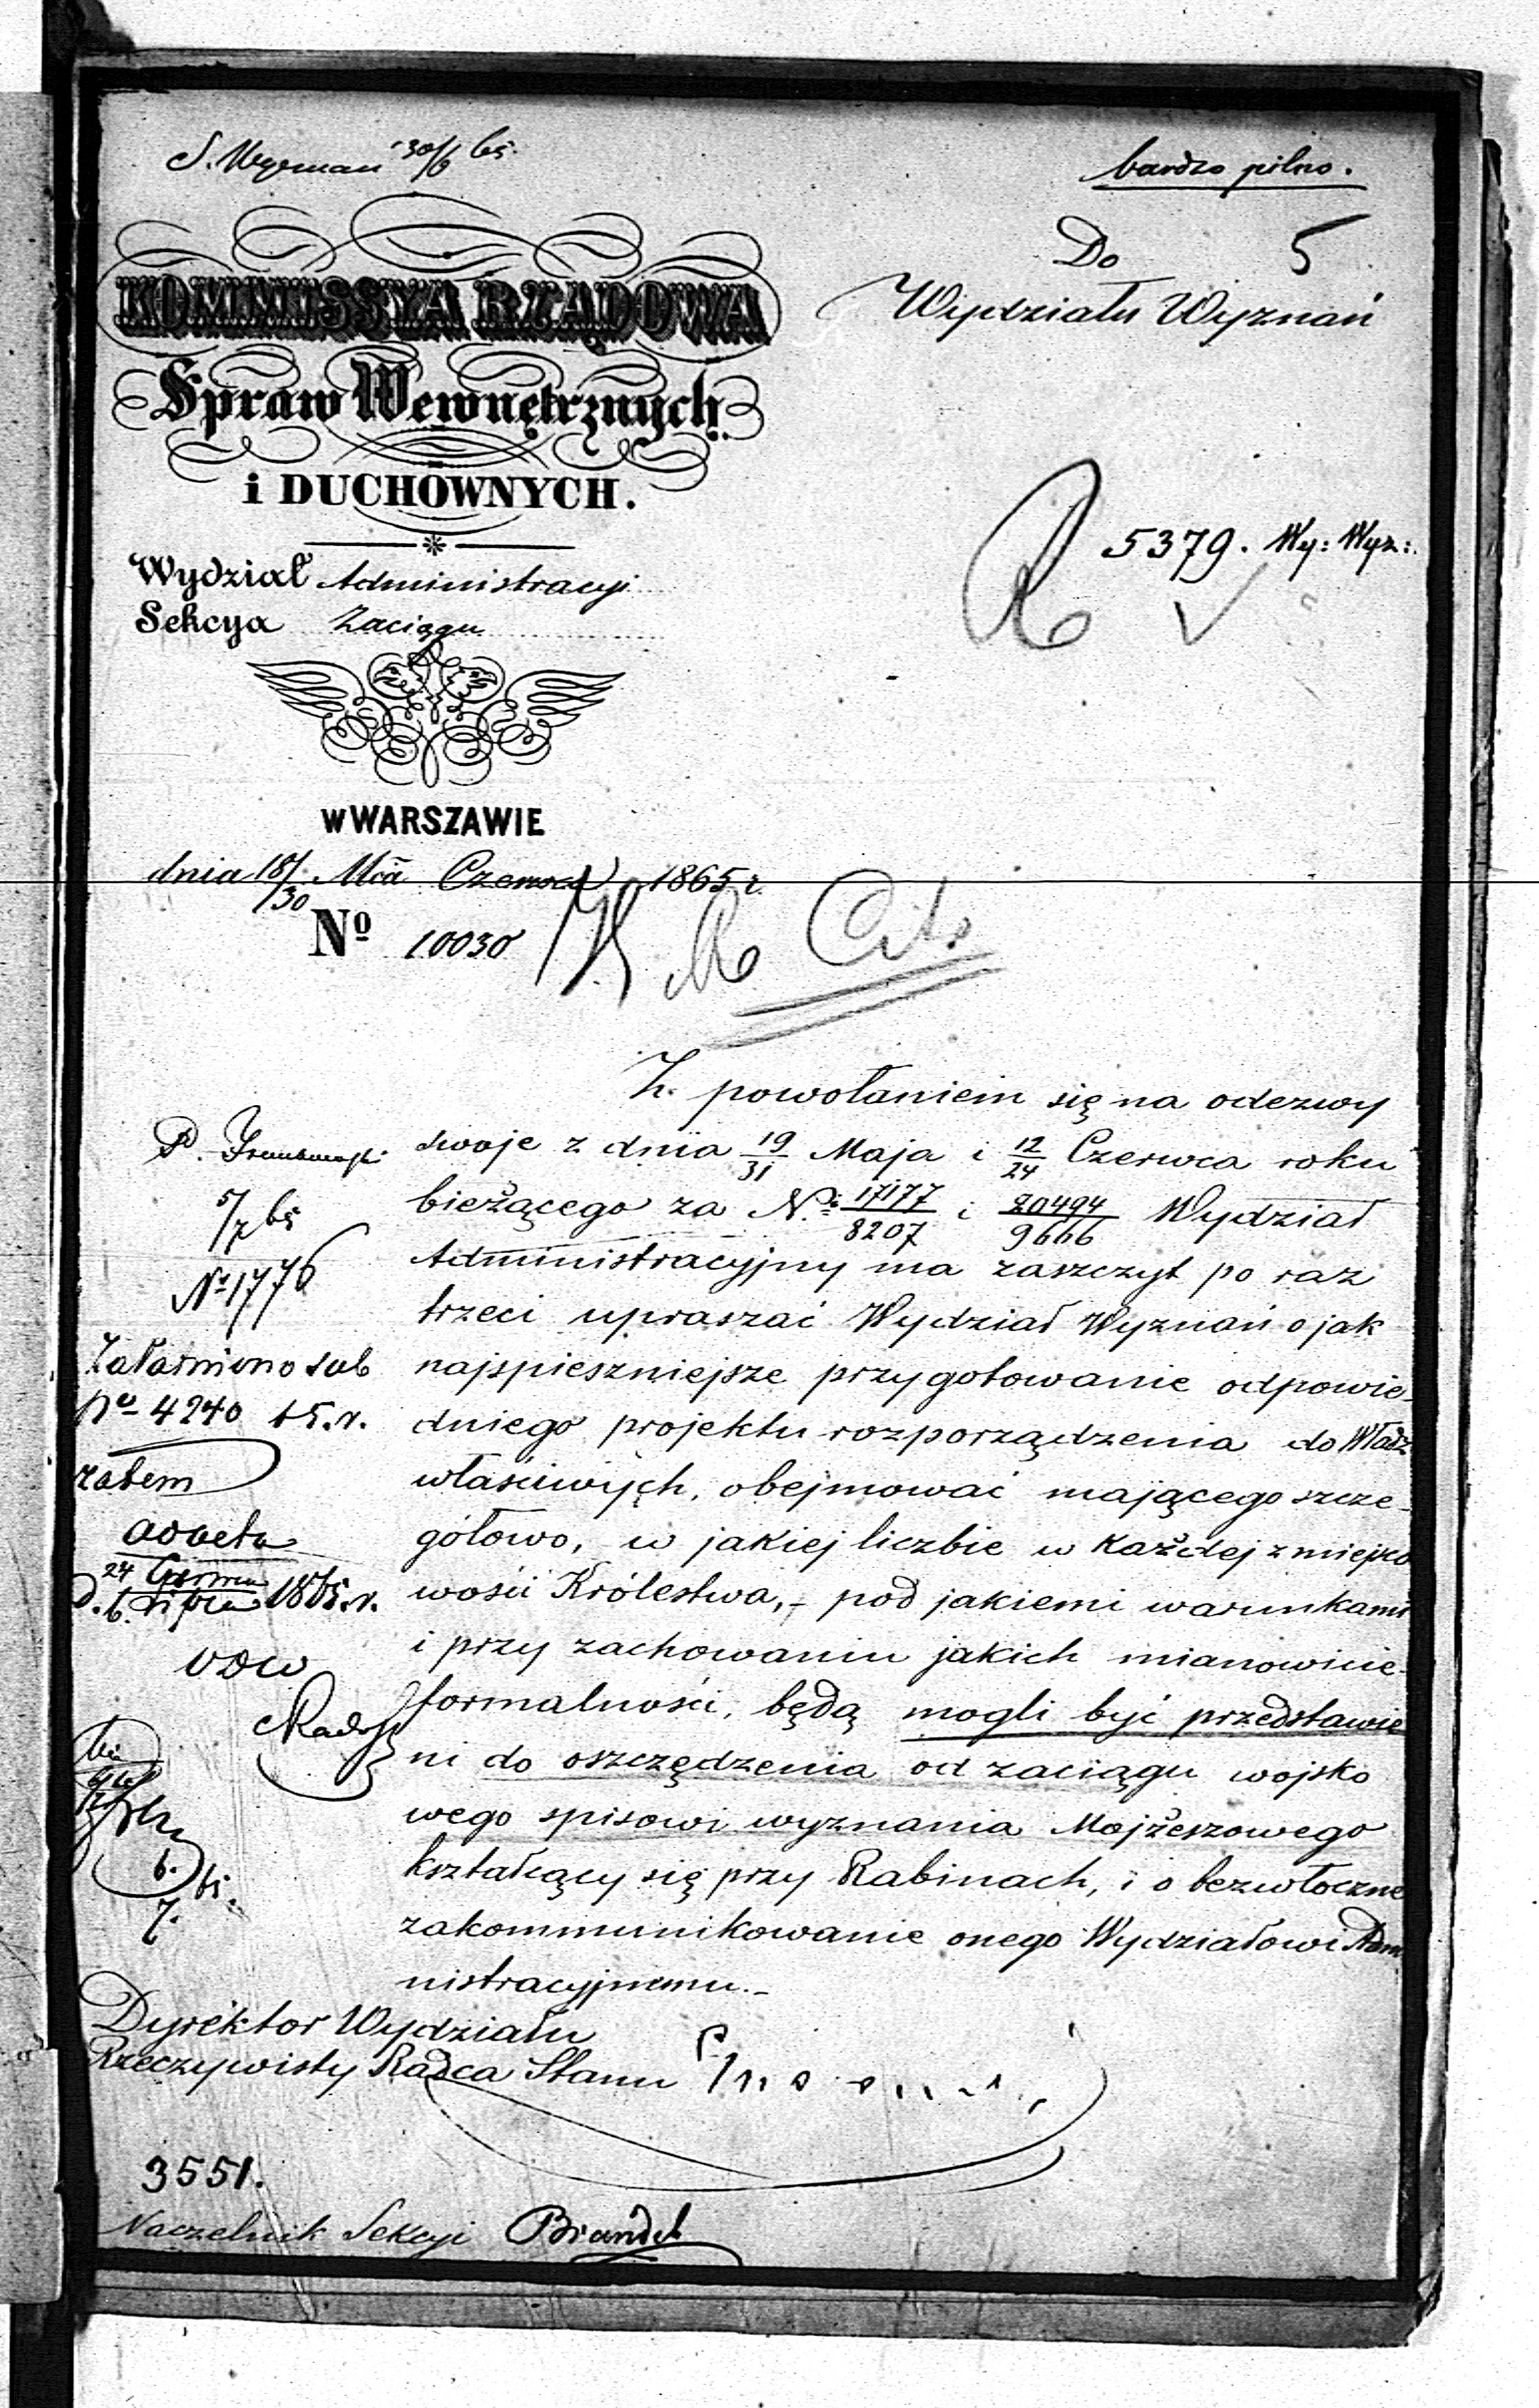 S. Wyznań 30/6 65.
bardzo pilno.
Do 5
Wydziału Wyznań
KOMMISSYA RZĄDOWA
Spraw Wewnętrznych
i DUCHOWNYCH.
5379. Wy: Wyz:.
Wydział Administracyi
Sekcya Zaciągu
w WARSZAWIE
dnia 18/30 Mca Czerwca 1865 r.
No 10030
Cito
Z powołaniem się na odezwy
swoje z dnia 19/31 Maja i 12/24 Czerwca roku
bieżącego za No: 17177/8207 i 20494/9666 Wydział
Administracyjny ma zaszczyt po raz
trzeci upraszać Wydział Wyznań o jak
najspieszniejsze przygotowanie odpowie-
dniego projektu rozporządzenia do Władz
właściwych, obejmować mającego szcze-
gółowo, w jakiej liczbie w każdej z miejsco
wości Królestwa,- pod jakiemi warunkami
i przy zachowaniu jakich mianowicie
formalności, będą mogli być przedstawie
ni do oszczędzenia od zaciągu wojsko
wego spisowi wyznania Mojżeszowego
kształcący się przy Rabinach, i o bezwłoczne
zakommunikowanie onego Wydziałowi Admi
nistracyjnemu.-
P.
5/7 65
No 1776
Załatwiono sub
No 4240 65.r.
zatem
ad acta
d. 24 Czerwca/6 Lipca 1865.r.
6.
7. 65.
Dyrektor Wydziału
Rzeczywisty Radca Stanu
3551.
Naczelnik Sekcyi Brandt